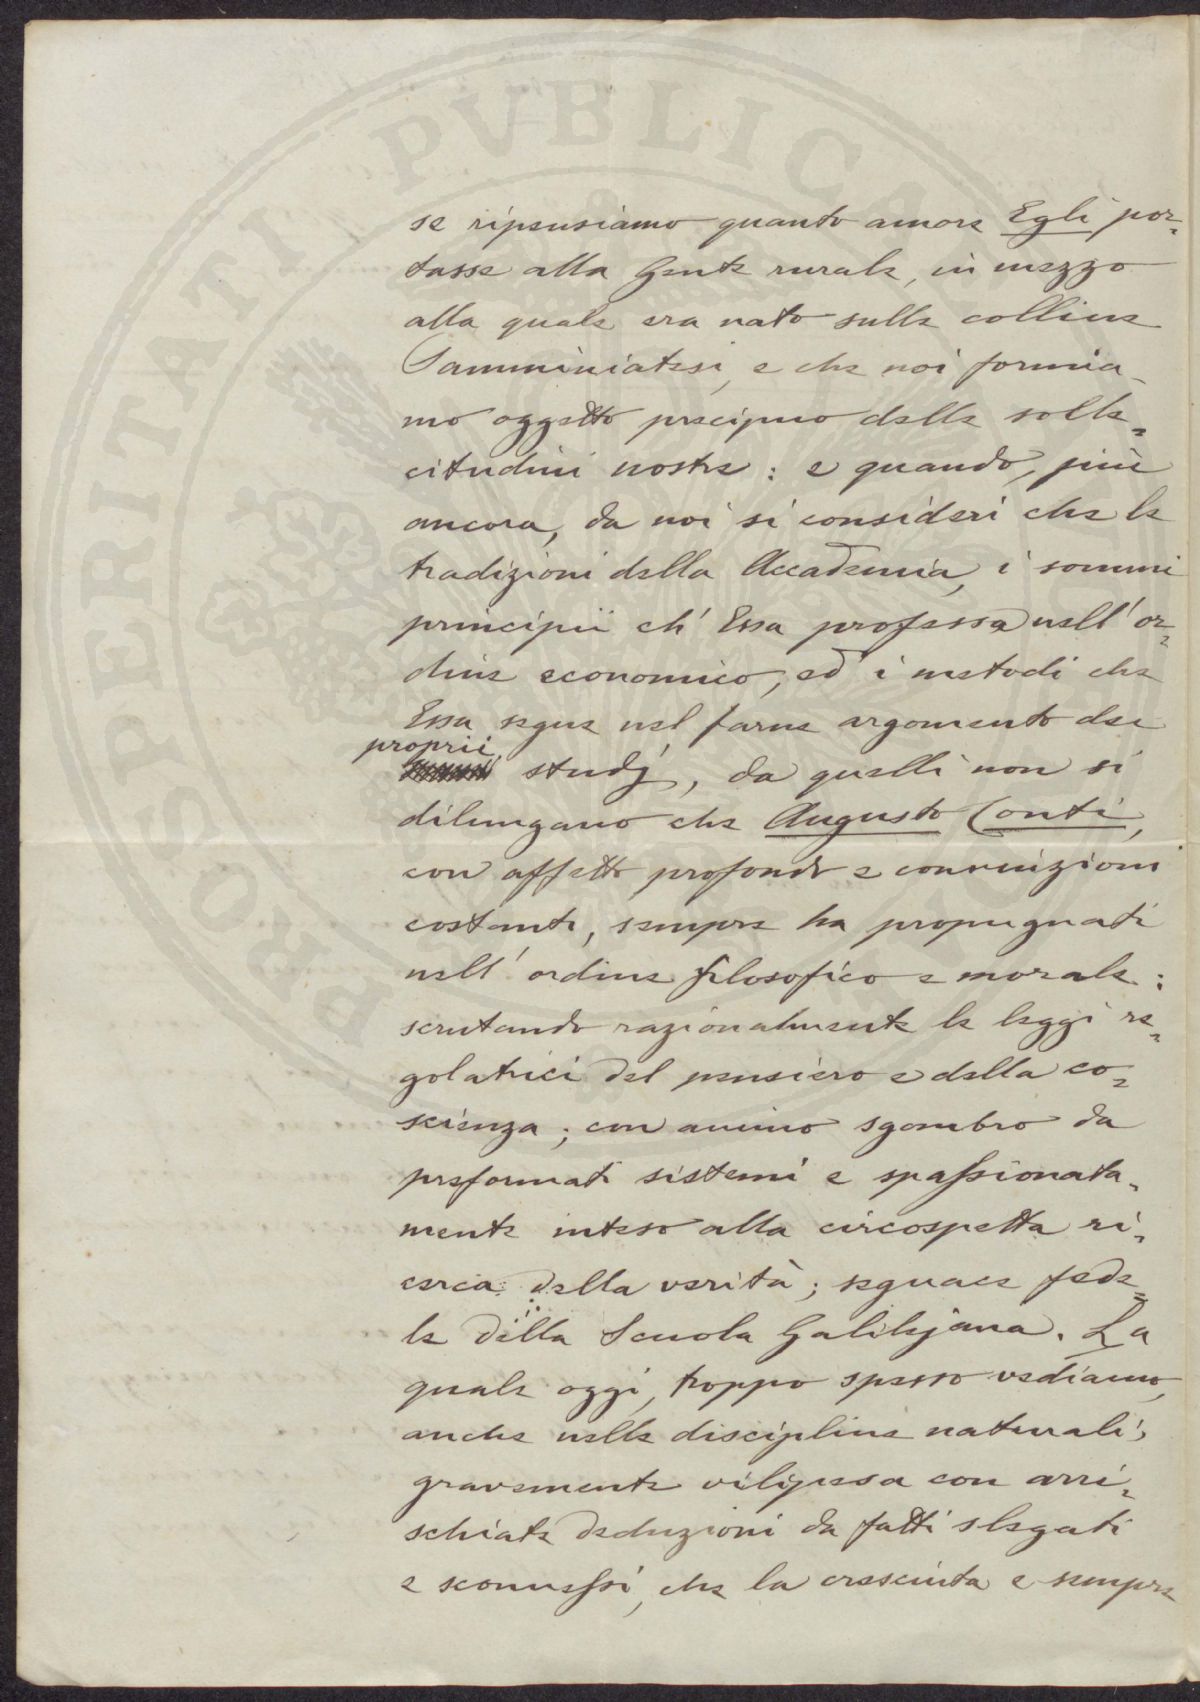 se ripensiamo quanto amore Egli por=
tasse alla Gente rurale, in mezzo
alla quale era nato sulle colline
Samminiatesi, e che noi formia-
mo oggetto precipuo delle solle=
citudini nostre: e quando, più
ancora, da noi si consideri che le
tradizioni della Accademia, i sommi
principii ch' Essa professa nell' or=
dine economico, ed i metodi che
Essa segue nel farne argomento dei
proprii
studj, da quelli non si
dilungano che Augusto Conti,
con affetto profondo e convinzioni
costanti, sempre ha propugnati
nell' ordine filosofico e morale:
scrutando razionalmente le leggi re=
golatrici del pensiero e della co=
scienza; con animo sgombro da
preformati sistemi e spassionata=
mente inteso alla circospetta ri=
cerca della verità; seguace fede=
le della Scuola Galilejana. La
quale oggi, troppo spesso vediamo,
anche nelle discipline naturali,
gravemente vilipesa con arri=
schiate deduzioni da fatti slegati
e sconnessi, che la cresciuta e sempre
PROSPERITATI PVBLICAE